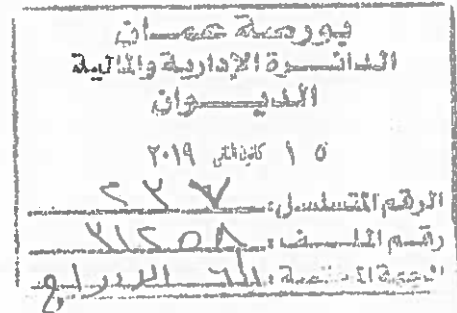 بورصة عمان
الدائرة الإدارية والمالية
الديوان
١٥ كانون الثاني ٢٠١٩
الرقم المتسلسل: ٢٢٧
رقم الملف: ٣١٢٥٨
الجهة المختصة: